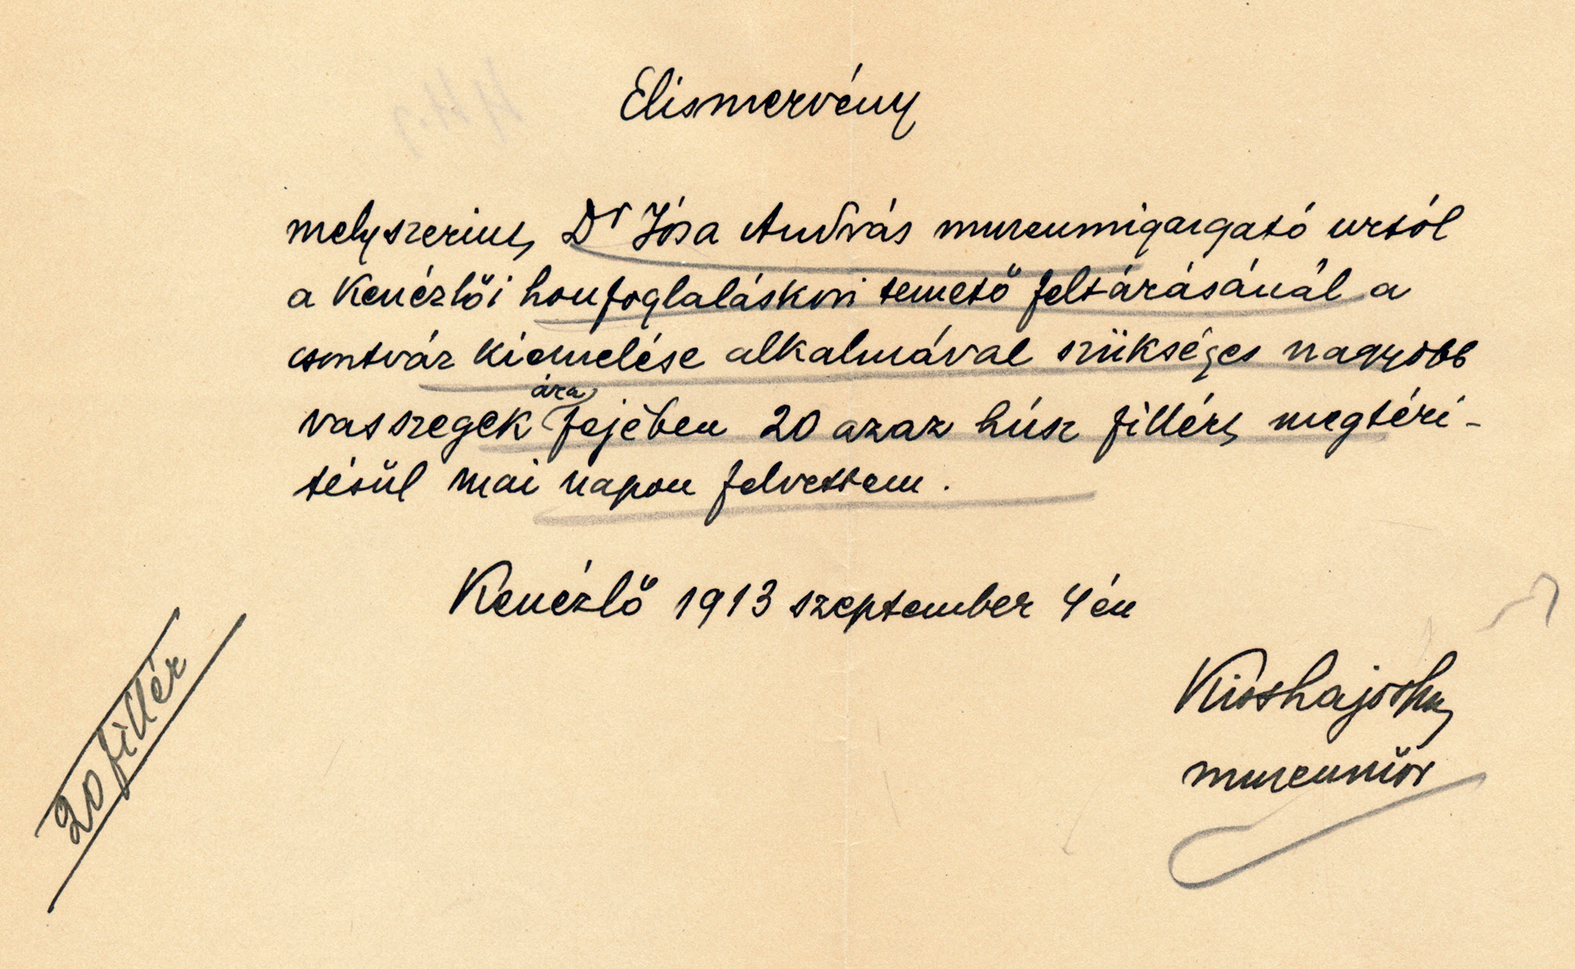 Elismervény
melyszerint, Dr Jósa András muzeumigazgató urtól
a Kenézlői honfoglaláskori temető feltárásánál a
csontváz kiemelése alkalmával szükséges nagyobb
vasszegek ára fejében 20 azaz húsz fillért megtéri-
tésül mai napon felvettem.
Kenézlő 1913 szeptember 4én
Kisshajoska
muzeumőr
20 fillér